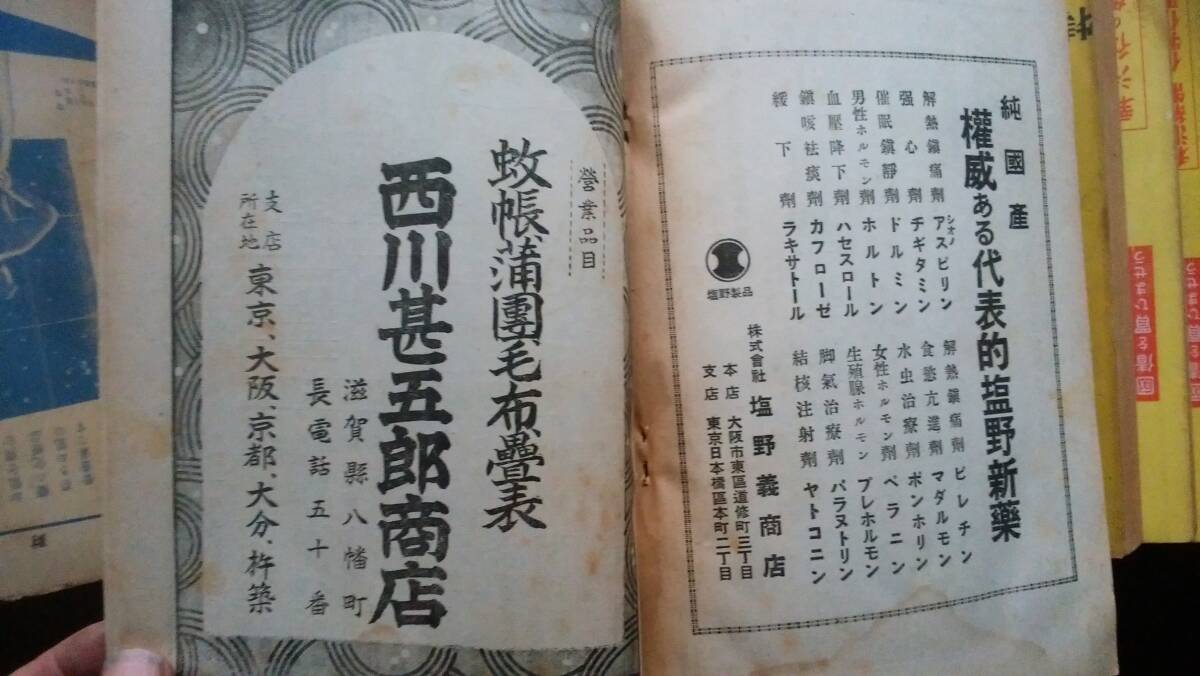 純國產
權威ある代表的塩野新藥
解熱鎮痛劑 シオノ アスピリン
强心劑 チギタミン
催眠鎮靜劑 ドルミン
男性ホルモン劑 ホルトン
血壓降下劑 ハセスロール
鎮咳袪痰劑 カフローゼ
緩下劑 ラキサトール
解熱鎮痛劑 ピレチン
食慾亢進劑 マダルモン
水虫治療劑 ポンホリン
女性ホルモン劑 ペラニン
生殖腺ホルモン プレホルモン
脚氣治療劑 パラヌトリン
結核注射劑 ヤトコニン
塩野製品
株式會社 塩野義商店
本店 大阪市東區道修町三丁目
支店 東京日本橋區本町二丁目
營業品目
蚊帳、蒲團、毛布、疊表
西川甚五郎商店
滋賀縣八幡町
長電話五十番
支店所在地 東京、大阪、京都、大分、杵築